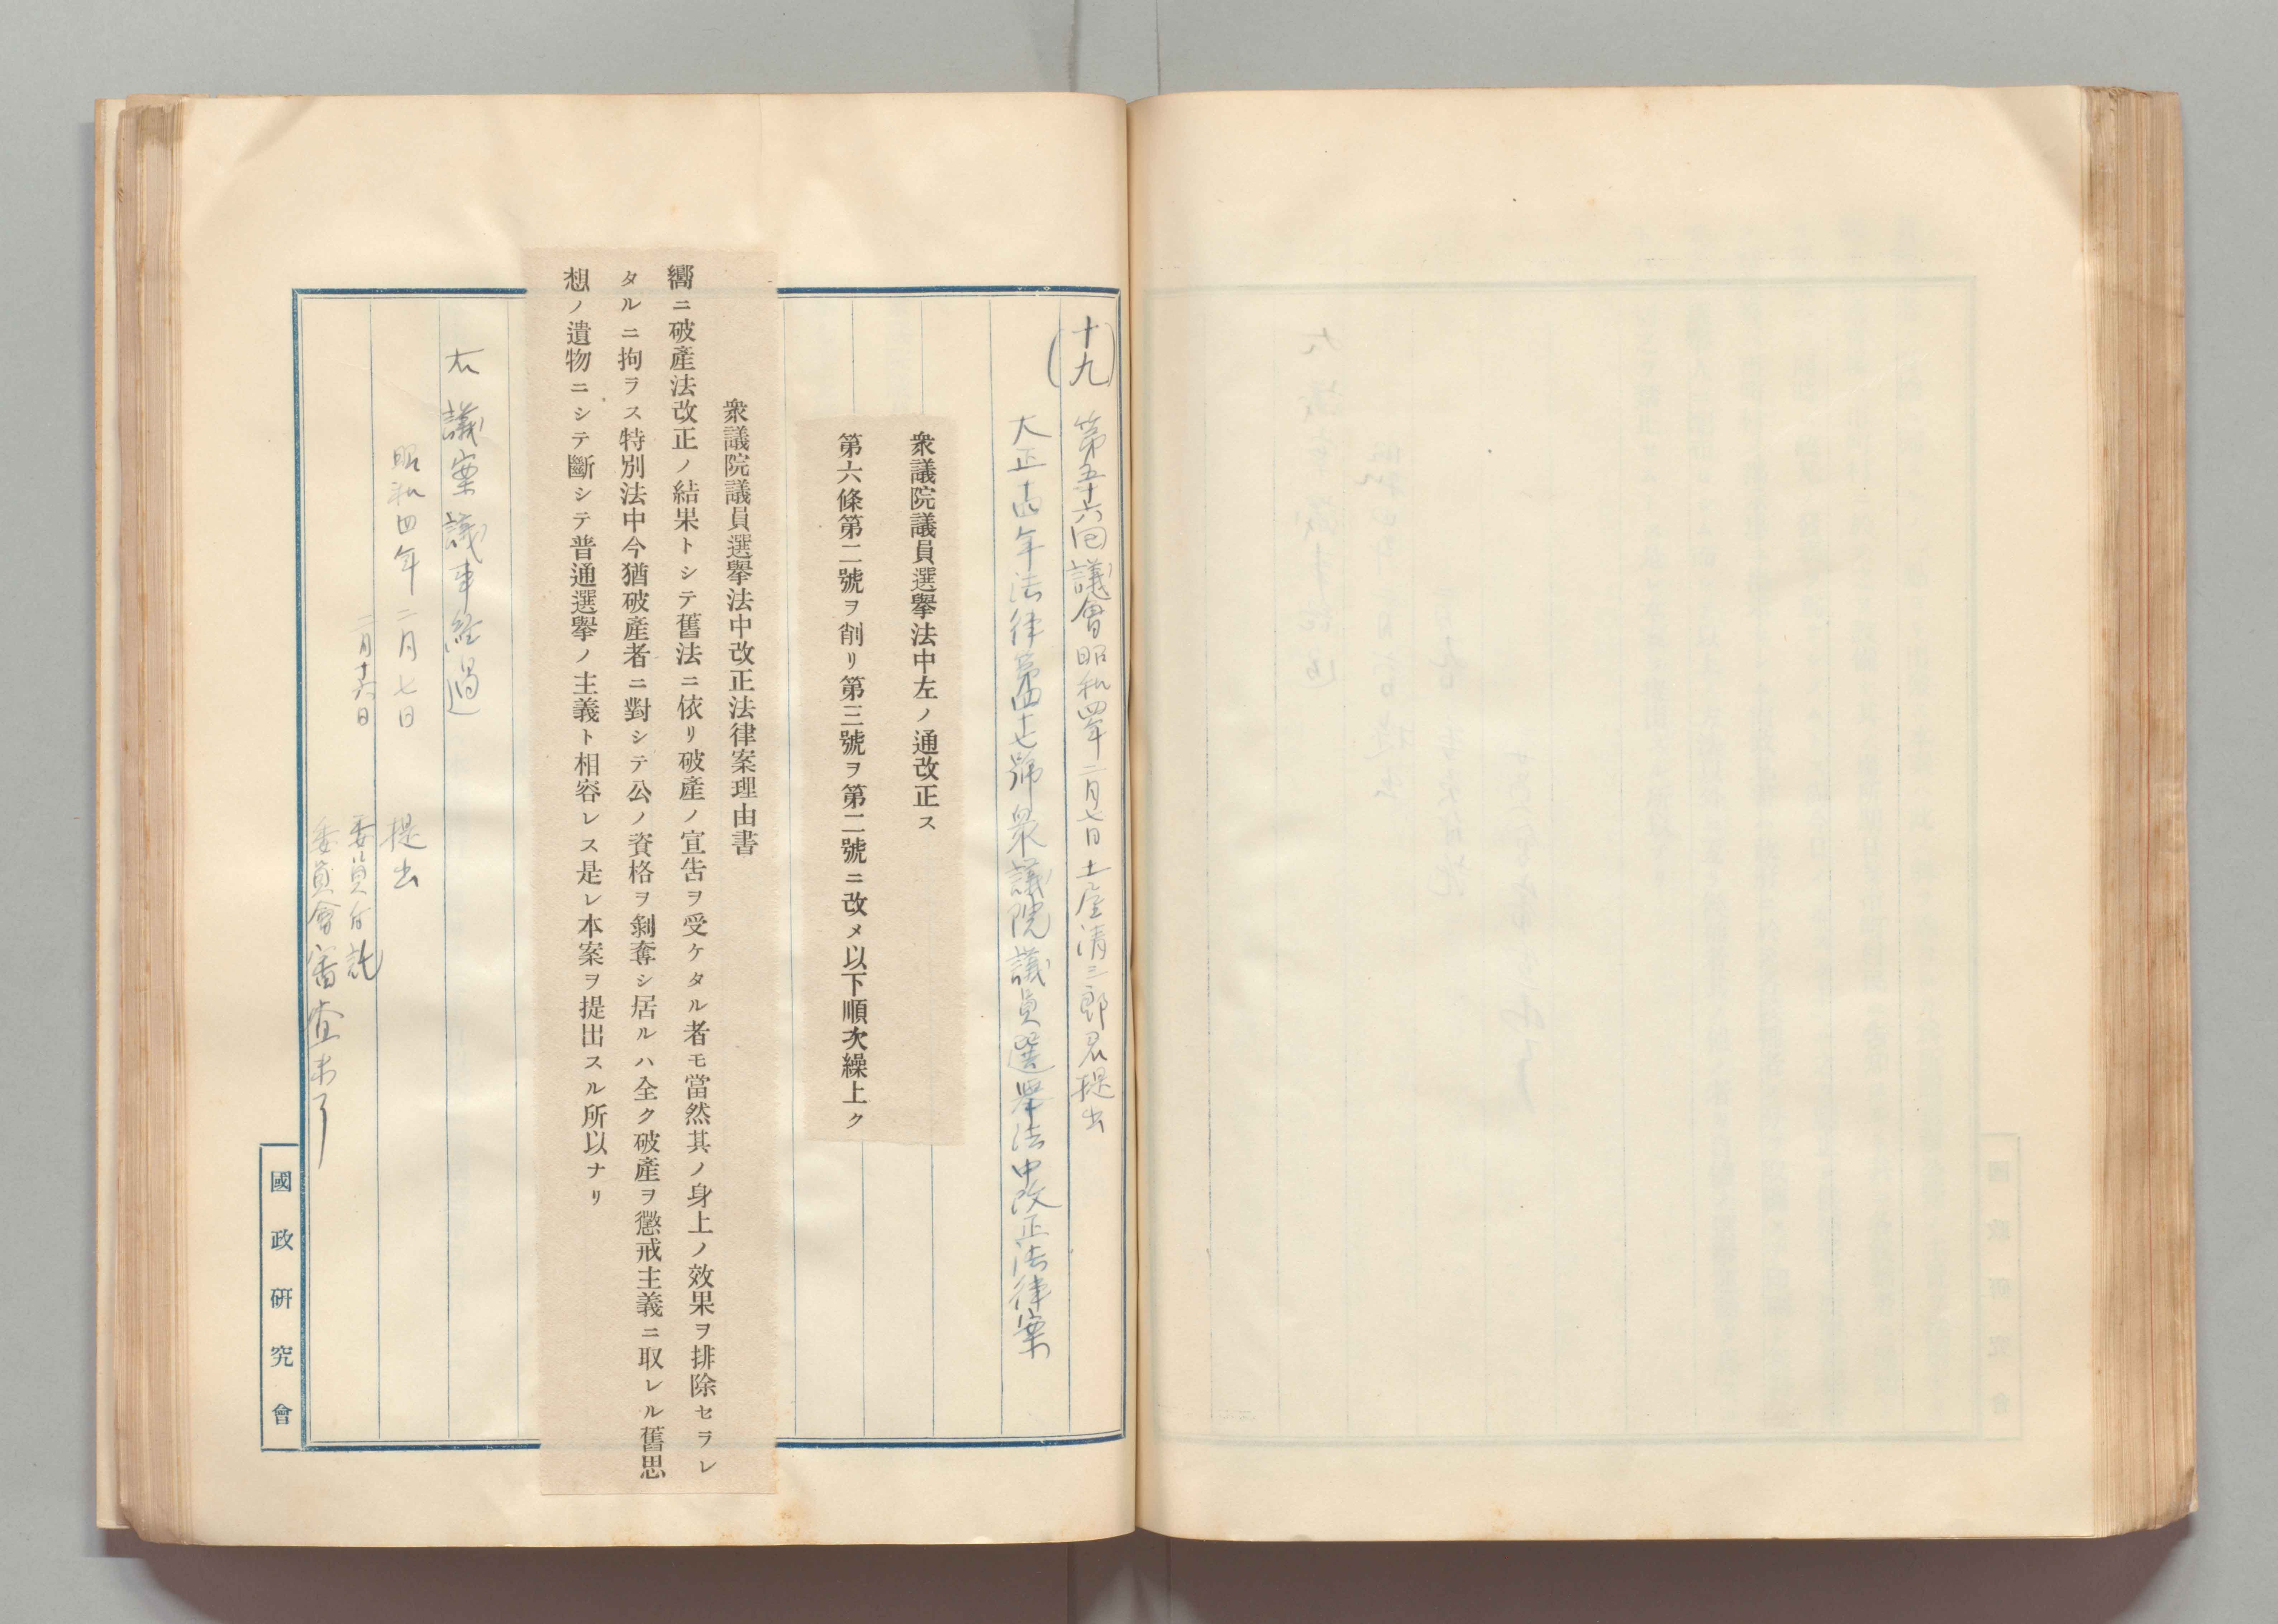 (十九)
第五十六回議會昭和四年二月七日土屋清三郎君提出
大正十四年法律第四十七號衆議院議員選擧法中改正法律案
衆議院議員選擧法中左ノ通改正ス
第六條第二號ヲ削リ第三號ヲ第二號ニ改メ以下順次繰上ク
衆議院議員選擧法中改正法律案理由書
嚮ニ破產法改正ノ結果トシテ舊法ニ依リ破產ノ宣吿ヲ受ケタル者モ當然其ノ身上ノ效果ヲ排除セラレ
タルニ拘ラス特別法中今猶破產者ニ對シテ公ノ資格ヲ剝奪シ居ルハ全ク破產ヲ懲戒主義ニ取レル舊思
想ノ遺物ニシテ斷シテ普通選擧ノ主義ト相容レス是レ本案ヲ提出スル所以ナリ
右議案議事経過
昭和四年二月七日 提出
二月十六日 委員付託
委員會審査未了
國政硏究會